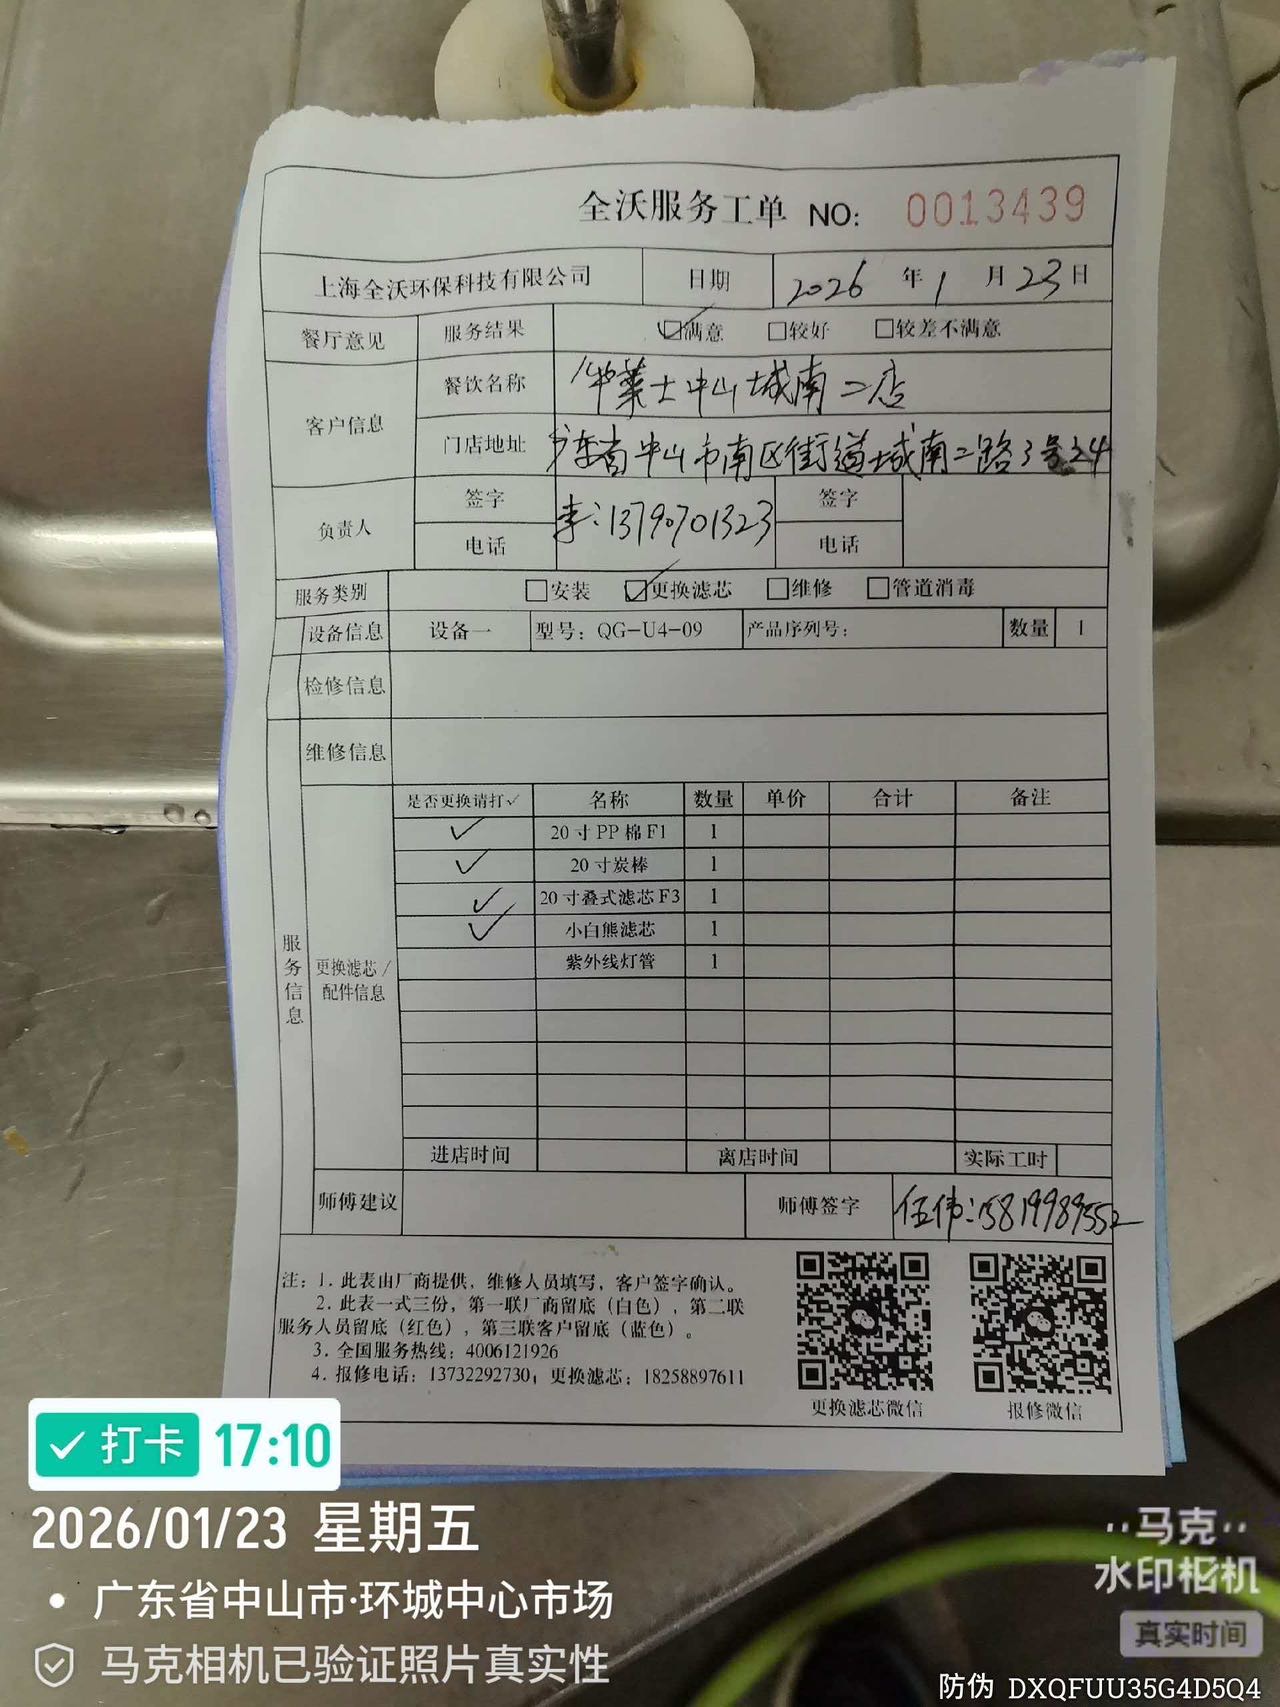 全沃服务工单 NO: 0013439
上海全沃环保科技有限公司 日期 2026 年 1 月 23 日
餐厅意见 服务结果 ☑满意 □较好 □较差不满意
客户信息 餐饮名称 华莱士中山城南二店
门店地址 广东省中山市南区街道城南二路3号24
负责人 签字 李:13790701323 签字
电话 电话
服务类别 □安装 ☑更换滤芯 □维修 □管道消毒
设备信息 设备一 型号: QG-U4-09 产品序列号: 数量 1
检修信息
维修信息
服务信息
更换滤芯/配件信息
是否更换请打✓ 名称 数量 单价 合计 备注
✓ 20寸PP棉F1 1
✓ 20寸炭棒 1
✓ 20寸叠式滤芯F3 1
✓ 小白熊滤芯 1
紫外线灯管 1
进店时间 离店时间 实际工时
师傅建议 师傅签字 伍伟:15819989552
注: 1. 此表由厂商提供, 维修人员填写, 客户签字确认。
2. 此表一式三份, 第一联厂商留底(白色), 第二联
服务人员留底(红色), 第三联客户留底(蓝色)。
3. 全国服务热线: 4006121926
4. 报修电话: 13732292730; 更换滤芯: 18258897611
更换滤芯微信 报修微信
✓ 打卡 17:10
2026/01/23 星期五
• 广东省中山市·环城中心市场
马克相机已验证照片真实性
马克
水印相机
真实时间
防伪 DXQFUU35G4D5Q4